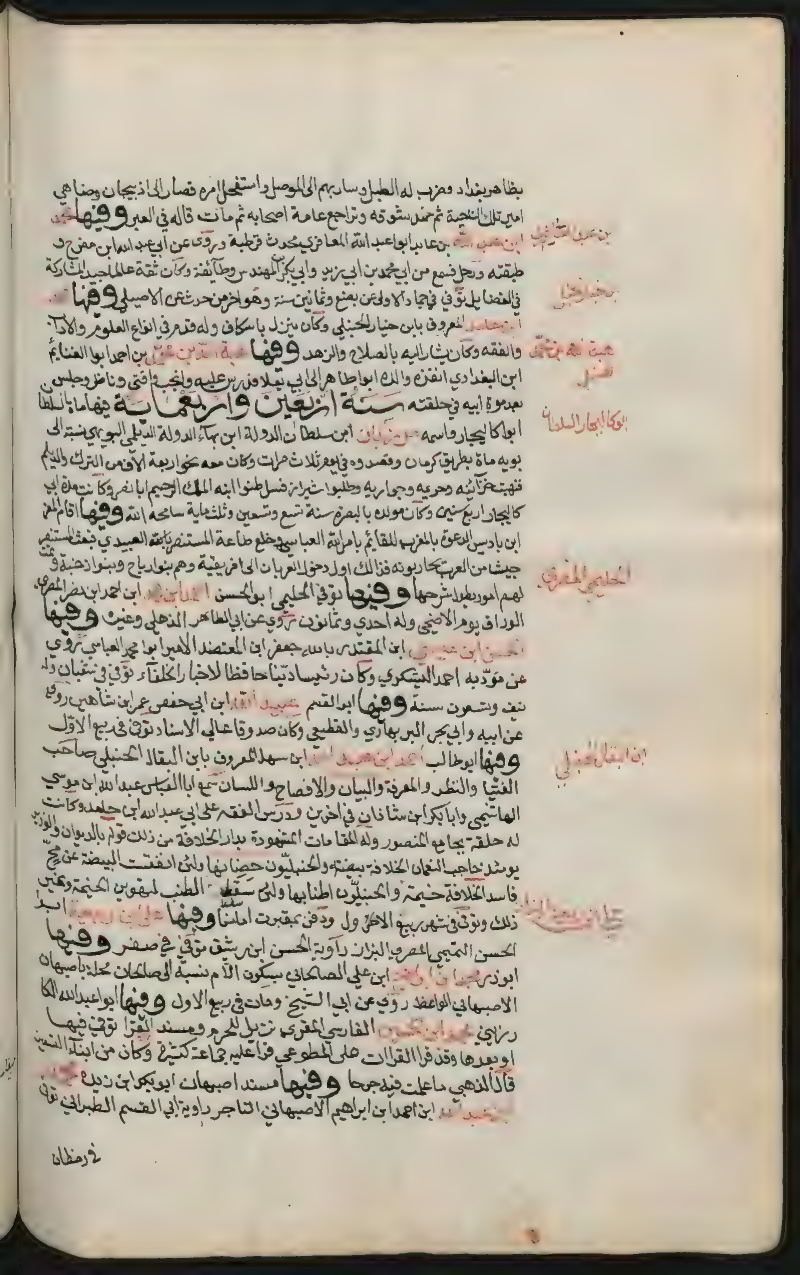 بظاهر بغداد وضرب له الطبل وسار بهم الى الموصل واستفحل امره فصار الى اذربيجان وضاهى
امير تلك الناحية ثم خمد سوقه وتراجع عامة اصحابه ثم مات قاله في العبر وفيها محمد
ابن عبد الله بن عابد ابوا عبد الله المعافري محدث قرطبة وروى عن ابي عبد الله ابن مفرج و
طبقته ورحل فسمع من ابي محمد بن ابي زيد وابي بكر المهندس وطايفة وكان ثقة عالما جيد المشاركة
في الفضايل توفي في جماد الاولى عن بضع وثمانين سنة وهو اخر من حدث عن الاصيلي وفيها
ابن حامد المعروف بابن خيار الحنبلي وكان ينزل باسكاف وله قدم في انواع العلوم والادب
والفقه وكان يشار اليه بالصلاح والزهد وفيها هبة الله بن محمد بن احمد ابوا الغنايم
ابن البغدادي انفذه والده ابوا طاهر الى ابي يعلا فدرس عليه وانجب وافتى وناظر وجلس
بعد موت ابيه في حلقته سنة اربعين واربعماية فيها مات السلطان
ابوا كاليجار واسمه مرزبان ابن سلطان الدولة ابن بهاء الدولة الديلمي البويهي نسبة الى
بويه مات بطريق كرمان وفصدوه في يوم ثلاث مرات وكان معه نحو اربعة الاف من الترك والديلم
فنهبت خزآئنه وحريمه وجواريه وطلبوا شيراز فسلطنوا ابنه الملك الرحيم ابا نصر وكانت مدة ابي
كاليجار اربع سنين وكان مولده بالبصرة سنة تسع وتسعين وثلثماية سامحه الله وفيها اقام المعز
ابن باديس الدعوة بالمغرب للقائم بامر الله العباسي وخلع طاعة المستنصر بالله العبيدي فبعث المستنصر
جيشا من العرب يحاربونه فذالك اول دخول العربان الى افريقية وهم بنوا رياح وبنوا زغبة وتمت
لهم امور يطول شرحها وفيها توفي الحليمي ابوا الحسن احمد ابن ابن احمد ابن نصر المقري
الوراق يوم الاضحى وله احدى وثمانون روى عن ابي الطاهر الذهلي وغيره وفيها
الحسن ابن عيسى ابن المقتدر بالله جعفر ابن المعتضد الامير ابوا محمد العباسي روى
عن مؤدبه احمد اليشكري وكان رئيسا دينا حافظا لاخبار الخلفآء توفي في شعبان وله
نيف وتسعون سنة وفيها ابوا القسم عبيد الله ابن ابي حفص عمر ابن شاهين روى
عن ابيه وابي بحر البربهاري والقطيعي وكان صدوقا عالي الاسناد توفي في ربيع الاول
وفيها ابو طالب ابن سهل المعروف بابن البقال الحنبلي صاحب
الفتيا والنظر والمعرفة والبيان والافصاح واللسان سمع ابا العباس عبد الله ابن موسى
الهاشمي وابا بكر ابن شاذان في اخرين ودرس الفقه على ابي عبد الله ابن حامد وكانت
له حلقة بجامع المنصور وله المقامات المشهودة بدار الخلافة من ذلك قوله بالديوان والوزير
يومئذ حاجب النعمان الخلافة بيضة والحنبليون حضانها ولئن انفقست البيضة عن مح
فاسد الخلافة خيمة والحنبليون اطنابها ولئن سقط الطنب لتهوين الخيمة وغير
ذلك وتوفي في شهر ربيع الاول ودفن بمقبرت امامنا وفيها علي ابن ربيعة ابوا
الحسن التميمي المصري البزاز راوية الحسن ابن رشيق توفي في صفر وفيها
ابوذر محمد ابن ابراهيم ابن علي الصالحاني بسكون اللام نسبة الى صالحان محلة باصبهان
الاصبهاني الواعظ روى عن ابي الشيخ ومات في ربيع الاول وفيها ابوا عبد الله الكا
رزيني محمد ابن الحسين الفارسي المقري نزيل الحرم ومسند القرا توفي فيها
او بعدها وقد قرا القراات على المطوعي قرا عليه جماعة كثيرة وكان من ابناء التسعين
قال الذهبي ما علمت فيه جرحا وفيها مسند اصبهان ابو بكر ابن ريذة محمد
ابن عبد الله ابن احمد ابن ابراهيم الاصبهاني التاجر راوية ابي القسم الطبراني توفي
في رمضان
بن خيار الحنبلي
هبة الله بن محمد
الحنبلي
ابو كاليجار السلطان
الحليمي المقري
ابن البقال الحنبلي
علي ابن ربيعة البزاز